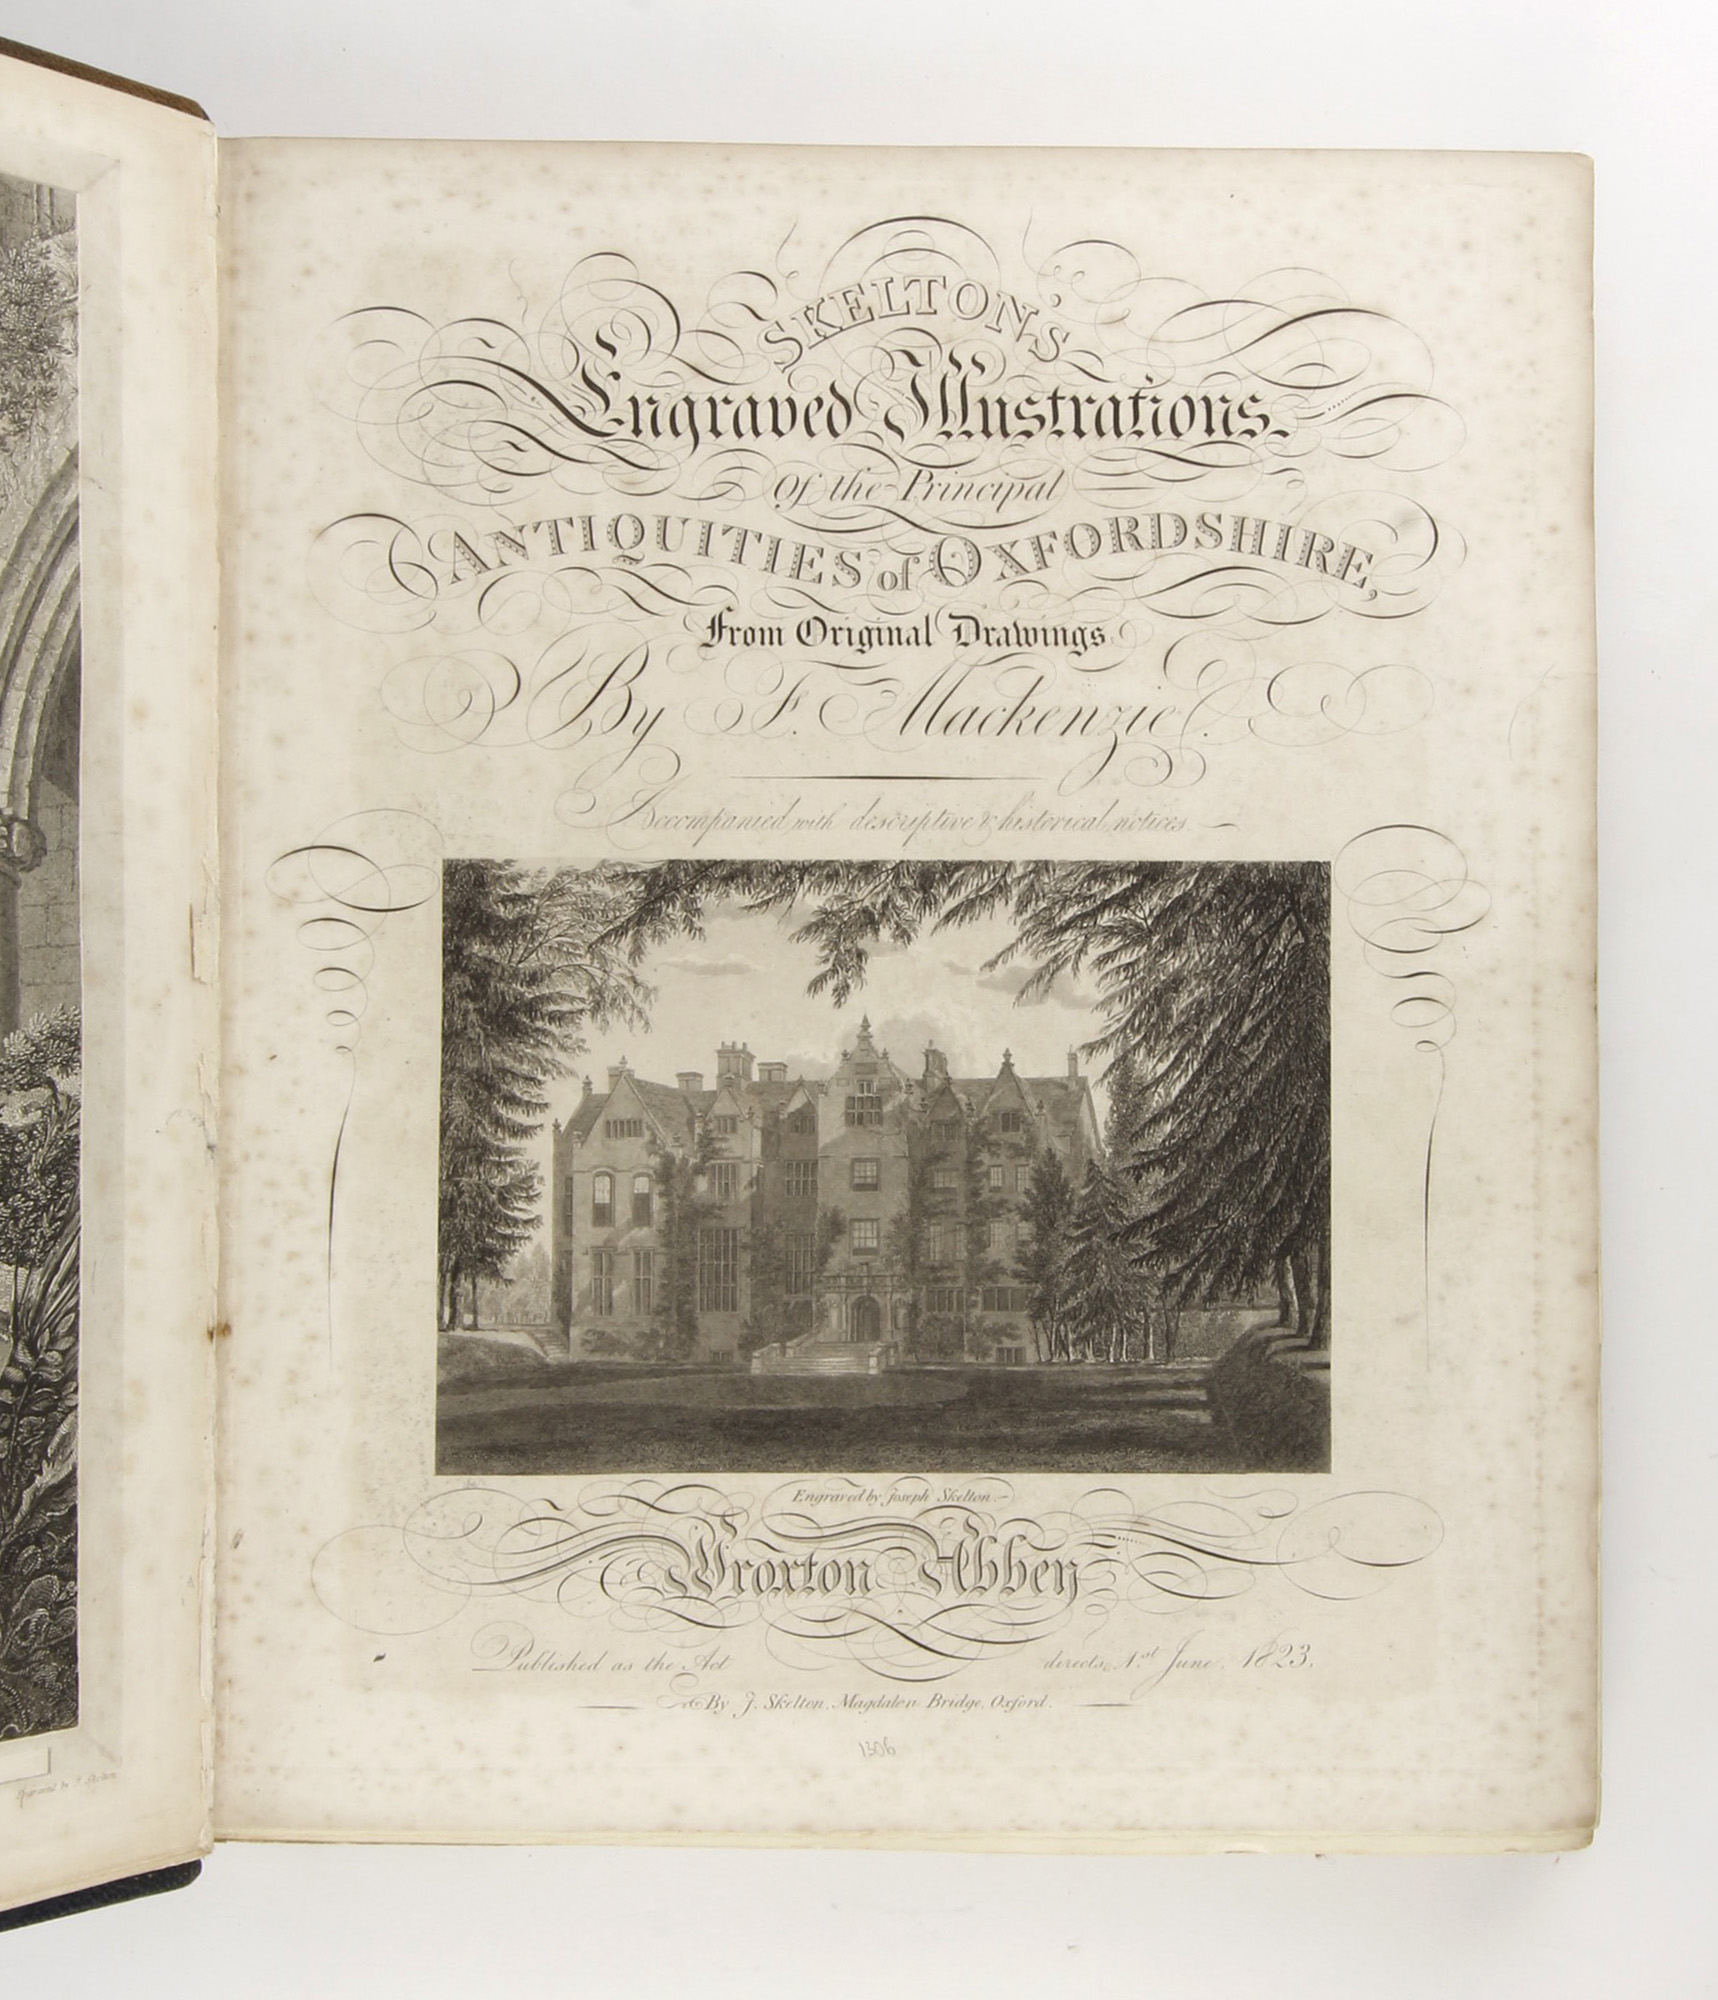 SKELTON'S
Engraved Illustrations
Of the Principal
ANTIQUITIES of OXFORDSHIRE,
From Original Drawings
By F. Mackenzie.
Accompanied with descriptive & historical notices.
Engraved by Joseph Skelton.
Wroxton Abbey
Published as the Act directs, 1.st June, 1823.
By J. Skelton, Magdalen Bridge, Oxford.
1306
Engraved by J. Skelton